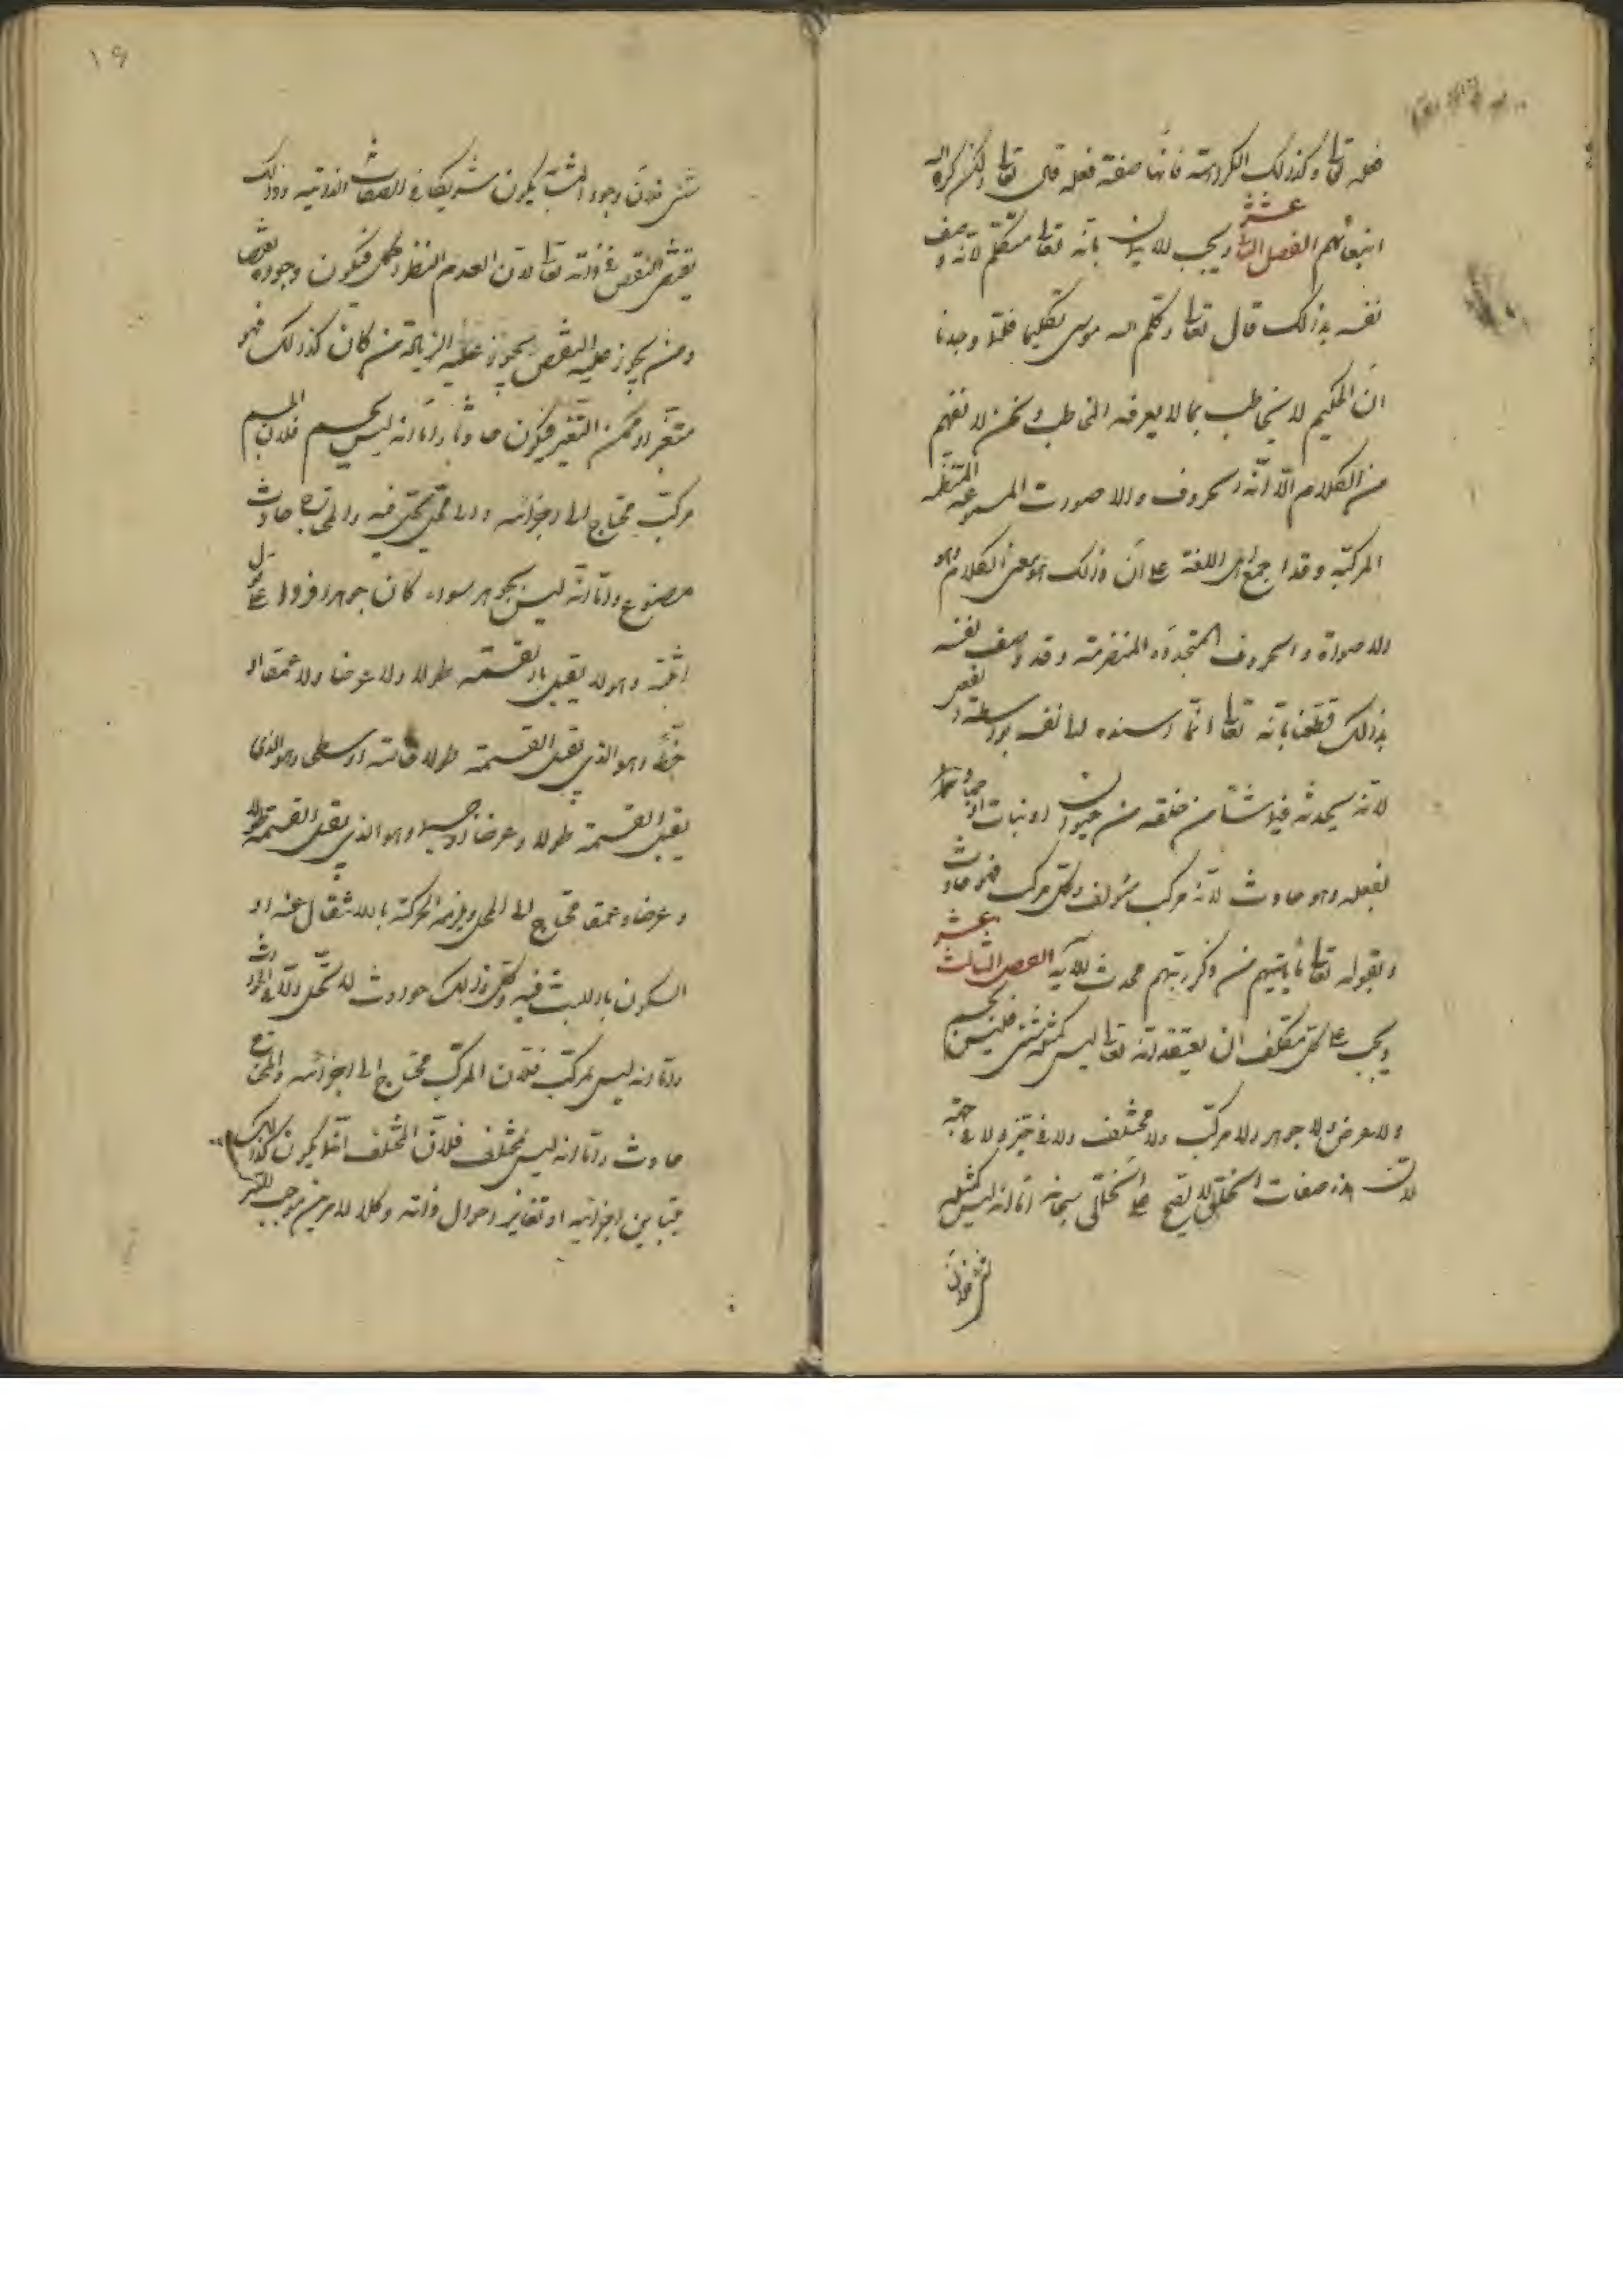 فعله تعالى وكذلك الكراهة فانها صفة فعله قال تعالى ولكن كره الله
انبعاثهم الفصل الثانى عشر ويجب الايمان بانه تعالى متكلم لانه وصف
نفسه بذلك قال تعالى وكلم الله موسى تكليما فلما وجدنا
انّ الحكيم لا يخاطب بما لا يعرفه المخاطب ونحن لا نفهم
من الكلام الّا انّه الحروف والاصوات المسموعة المنتظمة
المركبة وقد اجمع اهل اللغة على انّ ذلك هو معنى الكلام وهو
الاصوات والحروف المتجددة المنصرمة وقد وصف نفسه
بذلك قطعنا بانّه تعالى انّما اسنده الى نفسه بواسطة فعله
لانّه يحدثه فيما شاء من خلقه من حيوان او نبات او جماد
بفعله وهو حادث لانّه مركب مؤلف وكل مركب فهو حادث
وبقوله تعالى ما يأتيهم من ذكر ربهم محدث الآية الفصل الثالث عشر
ويجب على كل مكلف ان يعتقد انّه تعالى ليس كمثله شئ فليس بجسم
ولا عرض ولا جوهر ولا مركب ولا مختلف ولا فى حيّز ولا فى جهة
لانّ هذه صفات الخلق لا تصح على الخالق سبحانه امّا انّه ليس كمثله
شئ فلانّ
١٦
شئ فلانّ وجود المشابه يكون شريكا فى الصفات الذاتية وذلك
يقتضى النقص فى ذاته تعالى لانّ العدم النظير اكمل فيكون وجوده نقصا
ومن يجوز عليه النقص يجوز عليه الزيادة من كان كذلك فهو
متغيّر او ممكن التغيّر فيكون حادثا وامّا انّه ليس بجسم فلانّ الجسم
مركب محتاج الى اجزائه والى محل يحل فيه والمحتاج حادث
مصنوع وامّا انّه ليس بجوهر سواء كان جوهرا فردا على
اثبته وهو لا يقبل القسمة طولا ولا عرضا ولا عمقا او
خطّ وهو الذى يقبل القسمة طولا خاصة او سطح وهو الذى
يقبل القسمة طولا وعرضا او جسما وهو الذى يقبل القسمة طولا
وعرضا وعمقا محتاج الى المحل ويلزمه الحركة بالانتقال عنه او
السكون باللبث فيه وكل ذلك حوادث لا تحل الّا فى الحادث
وامّا انّه ليس بمركب فلانّ المركب محتاج الى اجزائه والمحتاج
حادث وامّا انّه ليس بمختلف فلانّ المختلف انّما يكون كذلك
بتباين اجزائه او تغاير احوال ذاته وكلا الامرين موجب للتركيب